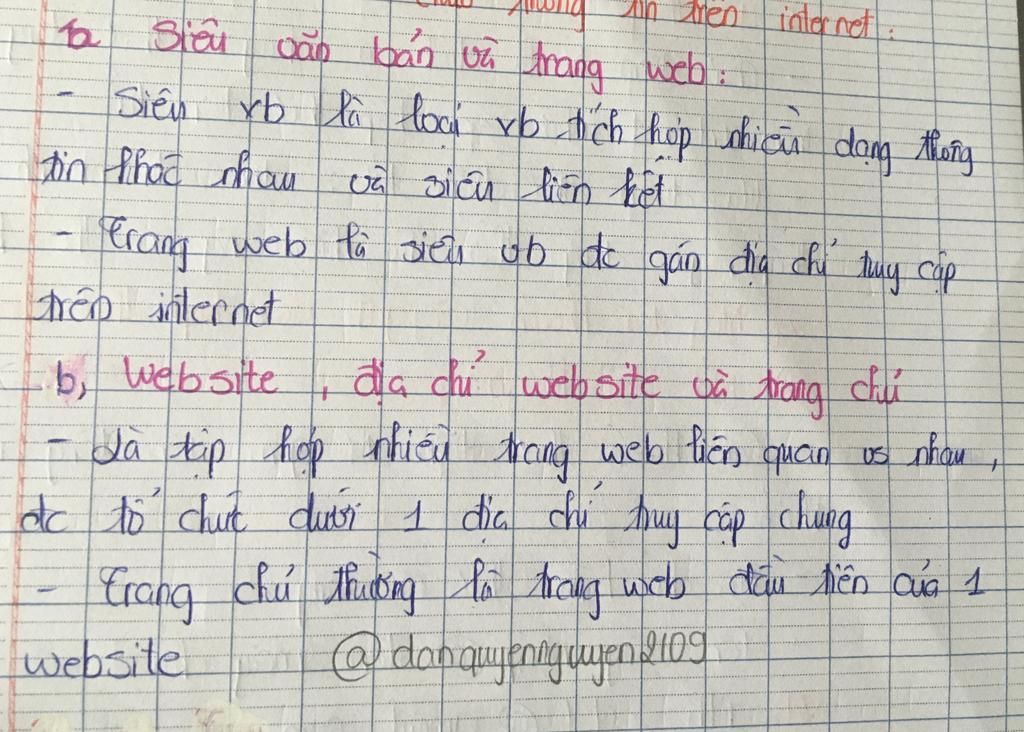 thông tin trên internet:
a Siêu văn bản và trang web:
- Siêu vb là loại vb tích hợp nhiều dạng thông
tin khác nhau và siêu liên kết
- Trang web là siêu vb đc gán địa chỉ truy cập
trên internet
b, Website, địa chỉ website và trang chủ
- Là tập hợp nhiều trang web liên quan vs nhau,
đc tổ chức dưới 1 địa chỉ truy cập chung
- Trang chủ thường là trang web đầu tiên của 1
website @danquyennguyen2109